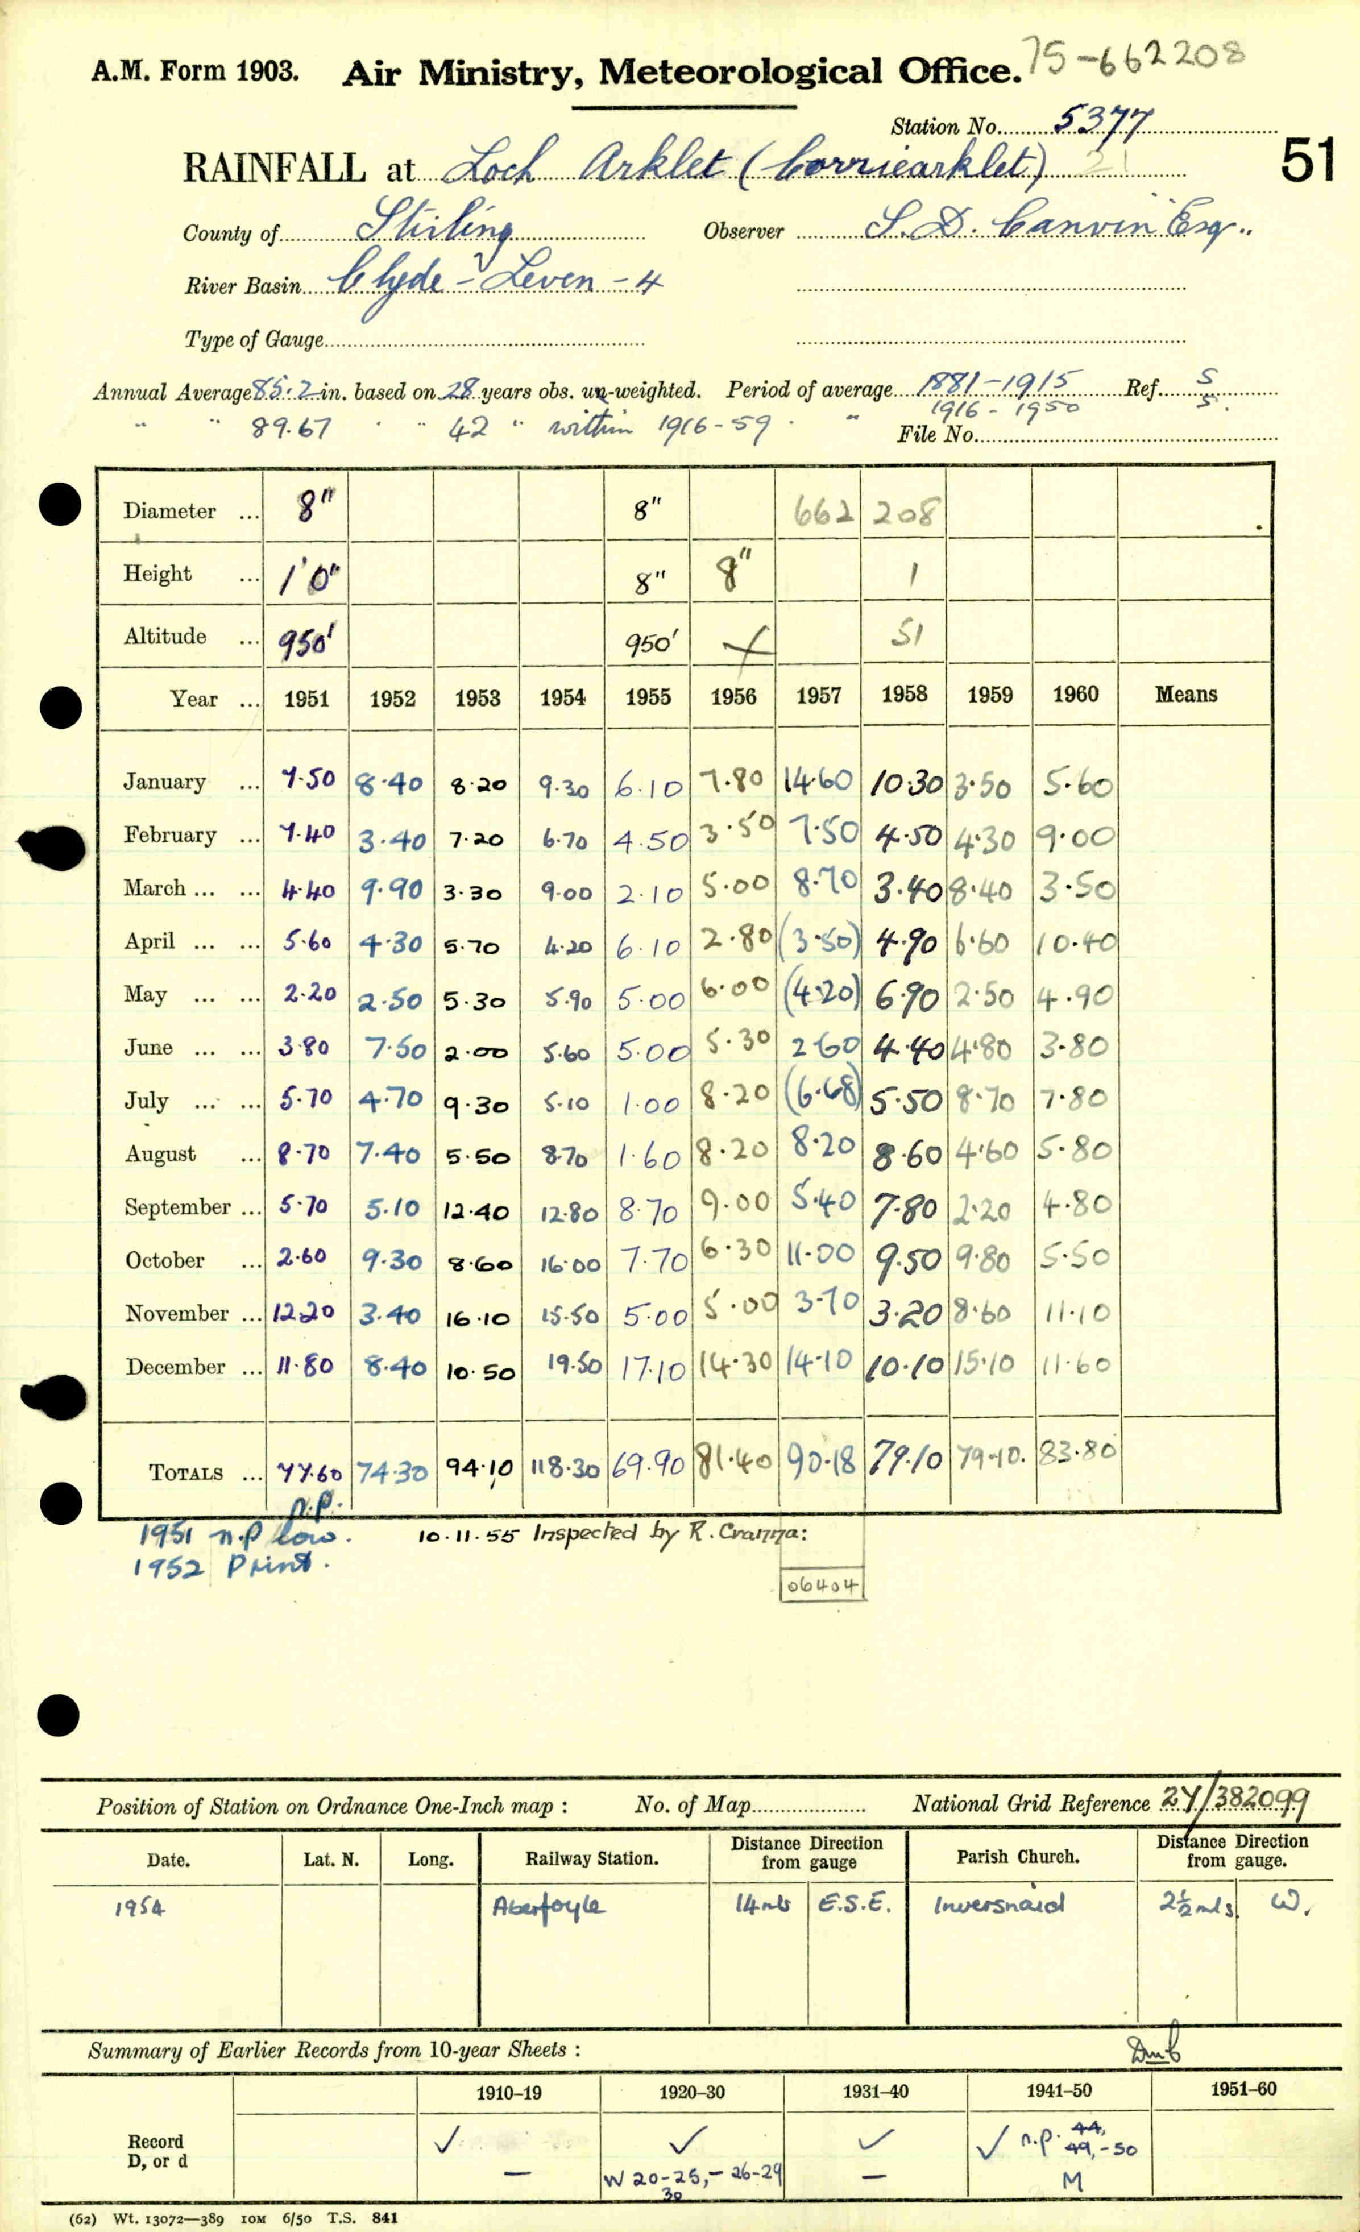 75-662208
A.M. Form 1903. Air Ministry, Meteorological Office.
Station No. 5377
RAINFALL at Loch Arklet (Corriearklet) 21
51
County of Stirling Observer S. D. Canvin Esq..
River Basin Clyde - Leven - 4
Type of Gauge
Annual Average 85.2 in. based on 28 years obs. un-weighted. Period of average 1881-1915 Ref. S
" " 89.67 " " 42 " within 1916-59. " 1916-1950 S.
File No.
Diameter ... 8" 8" 662 208
Height ... 1'0" 8" 8" 1
Altitude ... 950' 950' 51
Year ... 1951 1952 1953 1954 1955 1956 1957 1958 1959 1960 Means
January ... 7.50 8.40 8.20 9.30 6.10 7.80 14.60 10.30 3.50 5.60
February ... 7.40 3.40 7.20 6.70 4.50 3.50 7.50 4.50 4.30 9.00
March ... ... 4.40 9.90 3.30 9.00 2.10 5.00 8.70 3.40 8.40 3.50
April ... ... 5.60 4.30 5.70 4.20 6.10 2.80 (3.50) 4.90 6.60 10.40
May ... ... 2.20 2.50 5.30 5.90 5.00 6.00 (4.20) 6.90 2.50 4.90
June ... ... 3.80 7.50 2.00 5.60 5.00 5.30 2.60 4.40 4.80 3.80
July ... ... 5.70 4.70 9.30 5.10 1.00 8.20 (6.68) 5.50 8.70 7.80
August ... 8.70 7.40 5.50 8.70 1.60 8.20 8.20 8.60 4.60 5.80
September ... 5.70 5.10 12.40 12.80 8.70 9.00 5.40 7.80 2.20 4.80
October ... 2.60 9.30 8.60 16.00 7.70 6.30 11.00 9.50 9.80 5.50
November ... 12.20 3.40 16.10 15.50 5.00 5.00 3.70 3.20 8.60 11.10
December ... 11.80 8.40 10.50 19.50 17.10 14.30 14.10 10.10 15.10 11.60
TOTALS ... 77.60 74.30 94.10 118.30 69.90 81.40 90.18 79.10 79.10. 83.80
n.p.
1951 n.p low. 10.11.55 Inspected by R. Cranna:
1952 Print.
06404
Position of Station on Ordnance One-Inch map : No. of Map National Grid Reference 27/382099
Date. Lat. N. Long. Railway Station. Distance Direction from gauge Parish Church. Distance Direction from gauge.
1954 Aberfoyle 14 mls E.S.E. Inversnaid 2½ mls W.
Summary of Earlier Records from 10-year Sheets :
1910–19 1920–30 1931–40 1941–50 1951–60
Record ✓ ✓ ✓ ✓ n.p. 44, 49,-50
D, or d — W 20-25, - 26-29 30 — M
(62) Wt. 13072—389 10M 6/50 T.S. 841